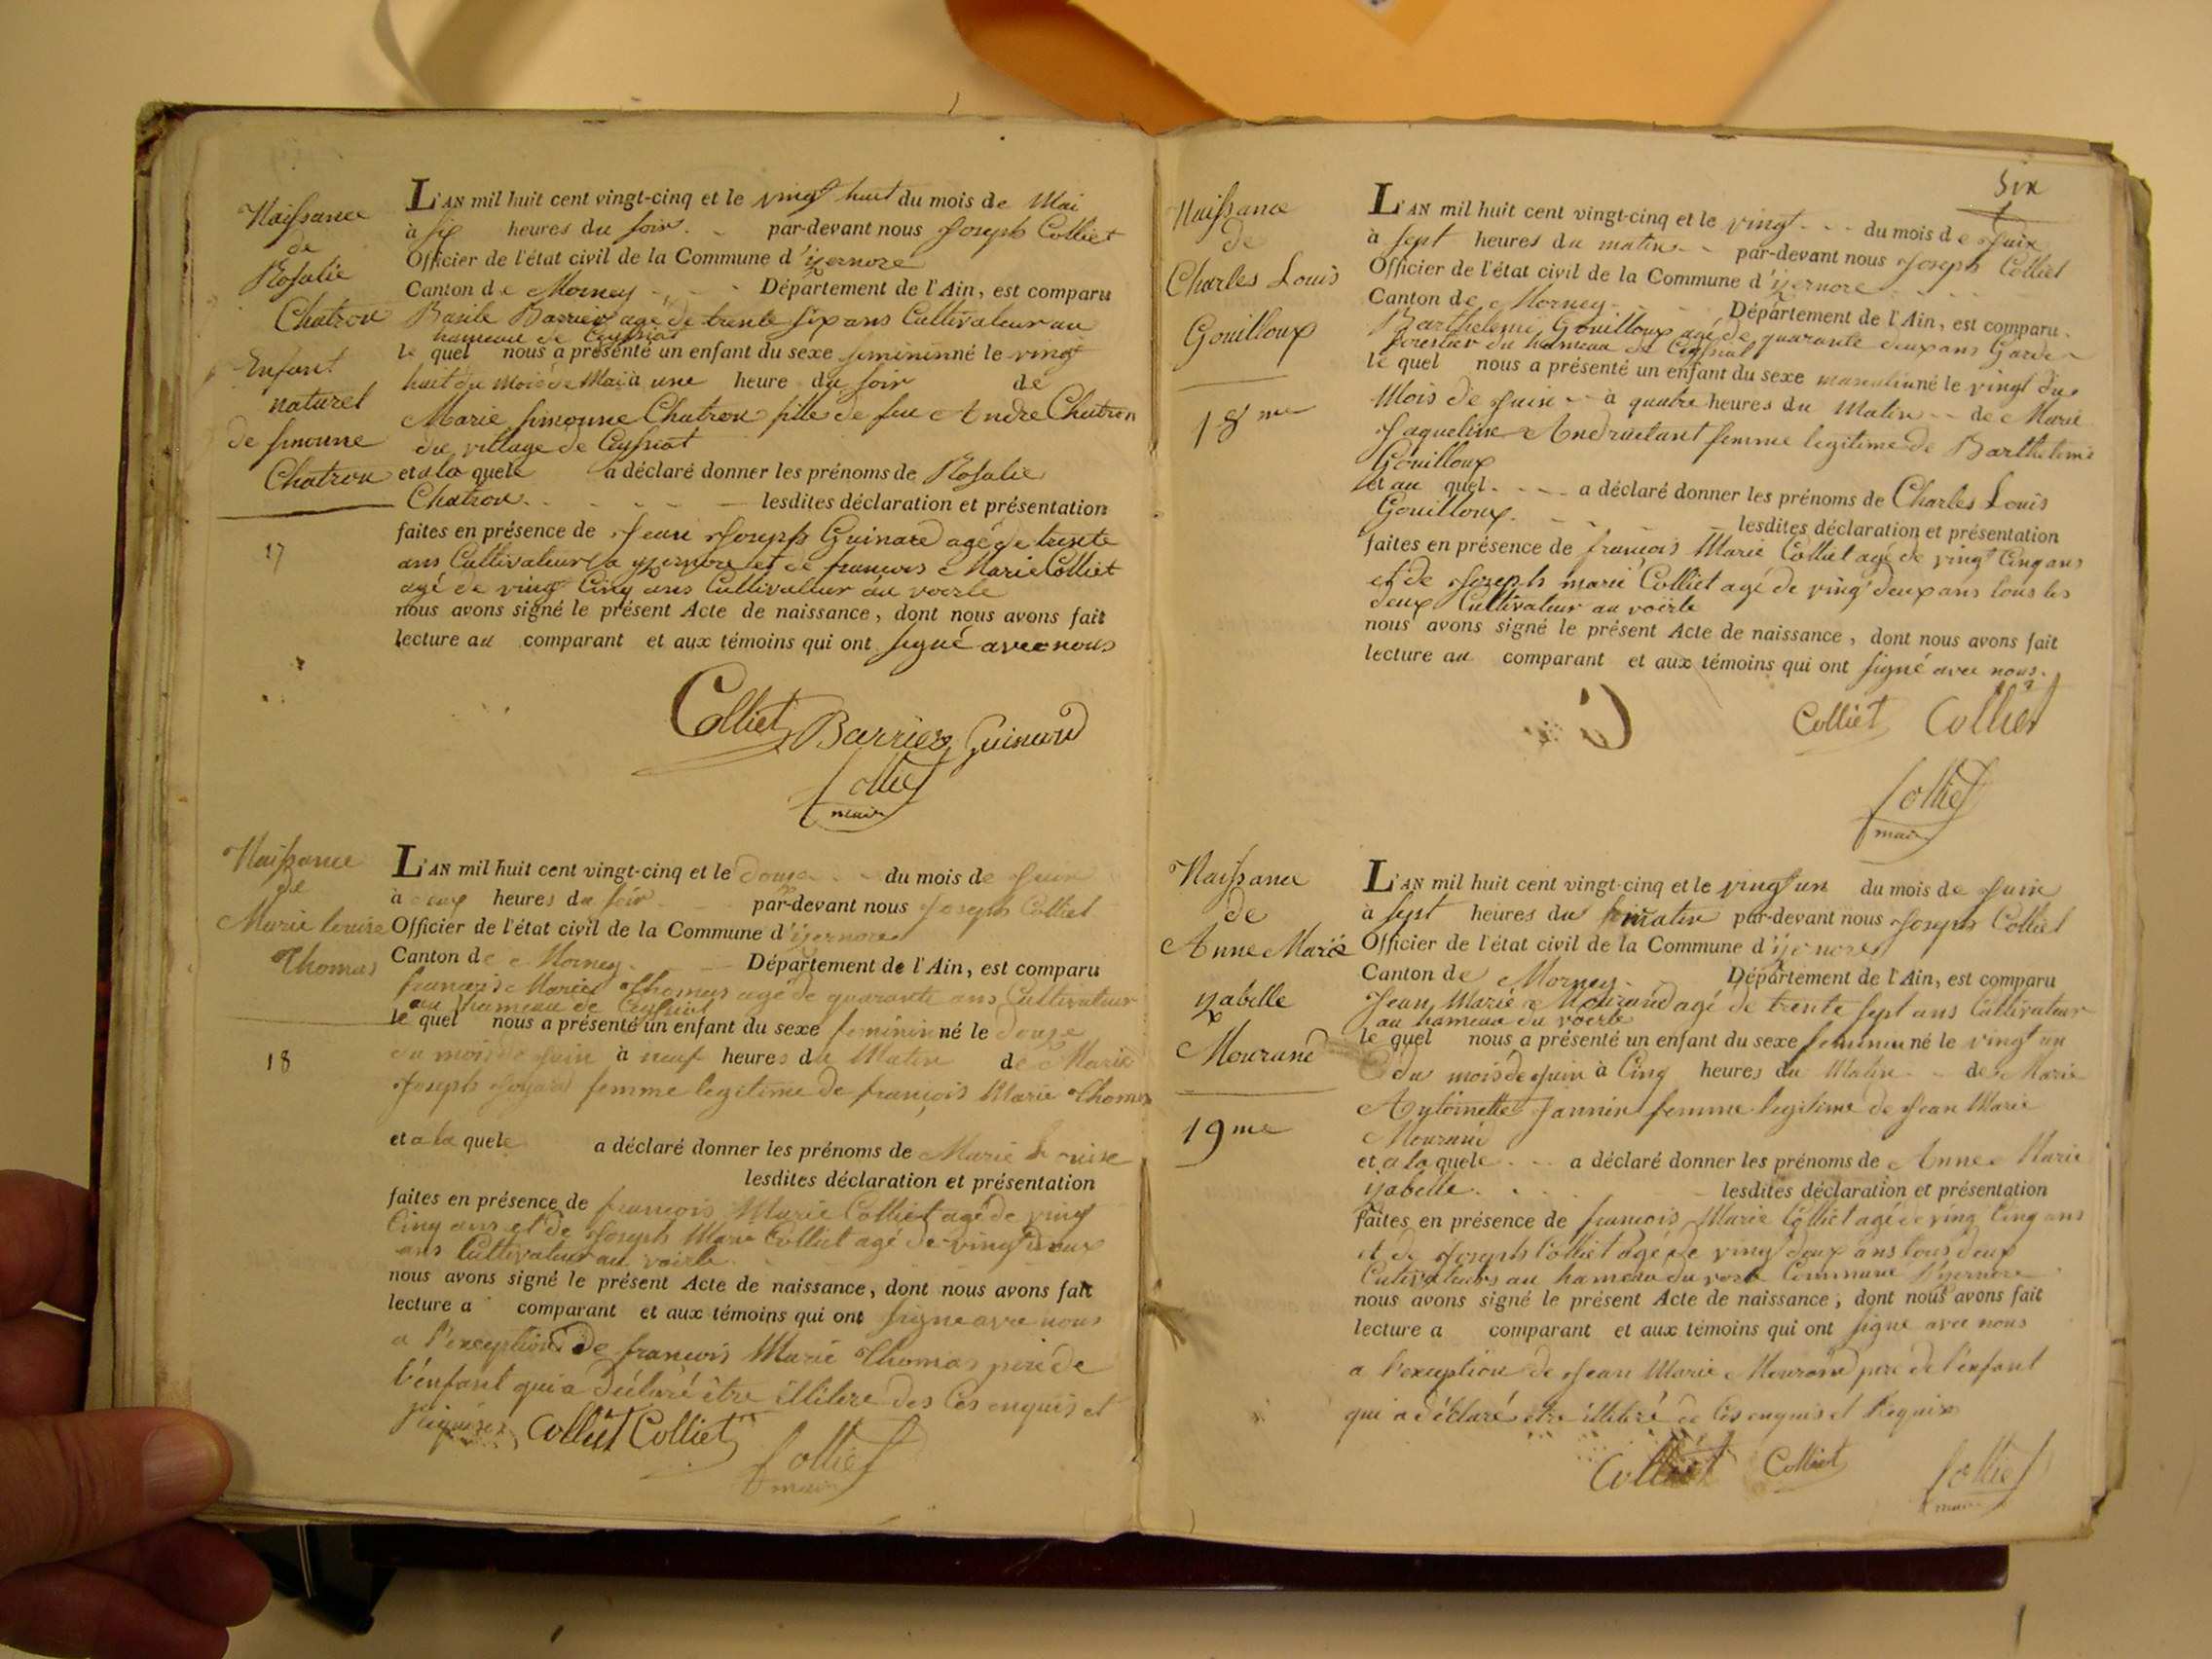 Naissance
de
Rosalie
Chatron
Enfant
naturel
de simonne
Chatron
17
L'AN mil huit cent vingt-cinq et le vingt huit du mois de Mai
à six heures du soir. par-devant nous Joseph Colliet
Officier de l'état civil de la Commune d'izernore
Canton de Morney Département de l'Ain, est comparu
Basile Barrier agé de trente six ans Cultivateur au
hameau de Ceyssiat
le quel nous a présenté un enfant du sexe femininné le vingt
huit du mois de Mai à une heure du soir de
Marie simonne Chatron fille de feu Andre Chatron
du village de Ceyssiat
et a la quele a déclaré donner les prénoms de Rosalie
Chatron. lesdites déclaration et présentation
faites en présence de Jean Joseph Guinard agé de trente
ans Cultivateur a yzernore et de francois Marie Colliet
agé de vingt Cinq ans Cultivateur au voerle
nous avons signé le présent Acte de naissance, dont nous avons fait
lecture au comparant et aux témoins qui ont signé avec nous
Colliet Barrier Guinard
Colliet
maire
Naissance
de
Marie louise
Thomas
18
L'AN mil huit cent vingt-cinq et le douze du mois de Juin
à deux heures du soir par-devant nous Joseph Colliet
Officier de l'état civil de la Commune d'izernore
Canton de Morney. Département de l'Ain, est comparu
francois Marie Thomas agé de quarante ans Cultivateur
au hameau de Ceyssiat
le quel nous a présenté un enfant du sexe fémininné le douze
du mois de Juin à neuf heures du Matin de Marie
Joseph femme legitime de françois Marie Thomas
et a la quele a déclaré donner les prénoms de Marie Louise
lesdites déclaration et présentation
faites en présence de françois Marie Colliet agé de vingt
Cinq ans et de Joseph Marie Colliet agé de vingt deux
ans Cultivateur au voirle.
nous avons signé le présent Acte de naissance, dont nous avons fait
lecture a comparant et aux témoins qui ont signe avec nous
a l'exception De francois Marie Thomas pere de
l'enfant qui a déclaré être illitere des Ces enquis et
Requises Colliet Colliet
Colliet
maire
Six
Naissance
de
Charles Louis
Gouilloux
18me
L'AN mil huit cent vingt-cinq et le vingt du mois de Juin
à sept heures du matin par-devant nous Joseph Colliet
Officier de l'état civil de la Commune d'izernore
Canton de Morney. Département de l'Ain, est comparu.
Barthelemi Gouilloux agé de quarante deux ans Garde
forestier du hameau de Ceyssiat
le quel nous a présenté un enfant du sexe masculinné le vingt du
Mois de Juin à quatre heures du Matin de Marie
Jaqueline Andruetant femme legitime de Barthelemi
Gouilloux
et au quel. a déclaré donner les prénoms de Charles Louis
Gouilloux. lesdites déclaration et présentation
faites en présence de françois Marie Colliet agé de vingt Cinq ans
et de Joseph marie Colliet agé de vingt deux ans tous les
deux Cultivateur au voirle
nous avons signé le présent Acte de naissance, dont nous avons fait
lecture au comparant et aux témoins qui ont signé avec nous.
Colliet Colliet
Colliet
maire
Naissance
de
Anne Marie
yzabelle
Mourand
19me
L'AN mil huit cent vingt-cinq et le vingt un du mois de Juin
à sept heures du matin par-devant nous Joseph Colliet
Officier de l'état civil de la Commune d'izernore
Canton de Morney. Département de l'Ain, est comparu
Jean Marie Mourand agé de trente sept ans Cultivateur
au hameau du voerle
le quel nous a présenté un enfant du sexe femininné le vingt un
du mois de juin à Cinq heures du Matin de Marie
Antoinette Jannin femme legitime de Jean Marie
Mourand
et a la quele a déclaré donner les prénoms de Anne Marie
yzabelle. lesdites déclaration et présentation
faites en présence de francois Marie Colliet agé de ving Cinq ans
et de Joseph Colliet agé de vingt deux ans tous deux
Cutivateurs au hameau du voerle Commune D'yzernore
nous avons signé le présent Acte de naissance, dont nous avons fait
lecture a comparant et aux témoins qui ont signe avec nous
a l'exception de Jean Marie Mourand pere de l'enfant
qui a déclaré etre illiteré de Ces enquis et Requis
Colliet Colliet Colliet
maire